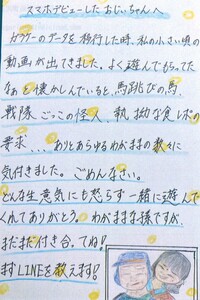 スマホデビューしたおじいちゃんへ
ガラケーのデータを移行した時、私の小さい頃の
動画が出てきました。よく遊んでもらってた
なぁと懐かしんでいると、馬跳びの馬、
戦隊ごっこの怪人、執拗な食レポの
要求...、ありとあらゆるわがままの数々に
気付きました。ごめんなさい。
どんな生意気にも怒らず一緒に遊んで
くれてありがとう。わがままな孫ですが、
まだまだ付き合ってね!
まずLINEを教えます!